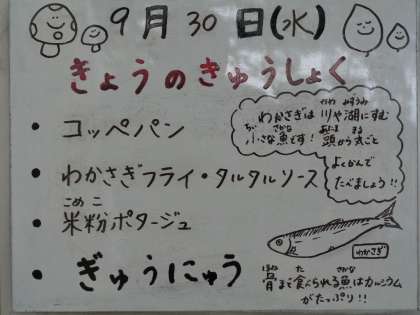 9月30日(水)
きょうのきゅうしょく
• コッペパン
• わかさぎフライ・タルタルソース
• 米粉ポタージュ
こめこ
• ぎゅうにゅう
わかさぎは川や湖にすむ
かわ みずうみ
小さな魚です！頭から丸ごと
ちい さかな あたま まる
よくかんで
たべましょう!!
わかさぎ
骨まで食べられる魚はカルシウム
ほね た さかな
がたっぷり!!